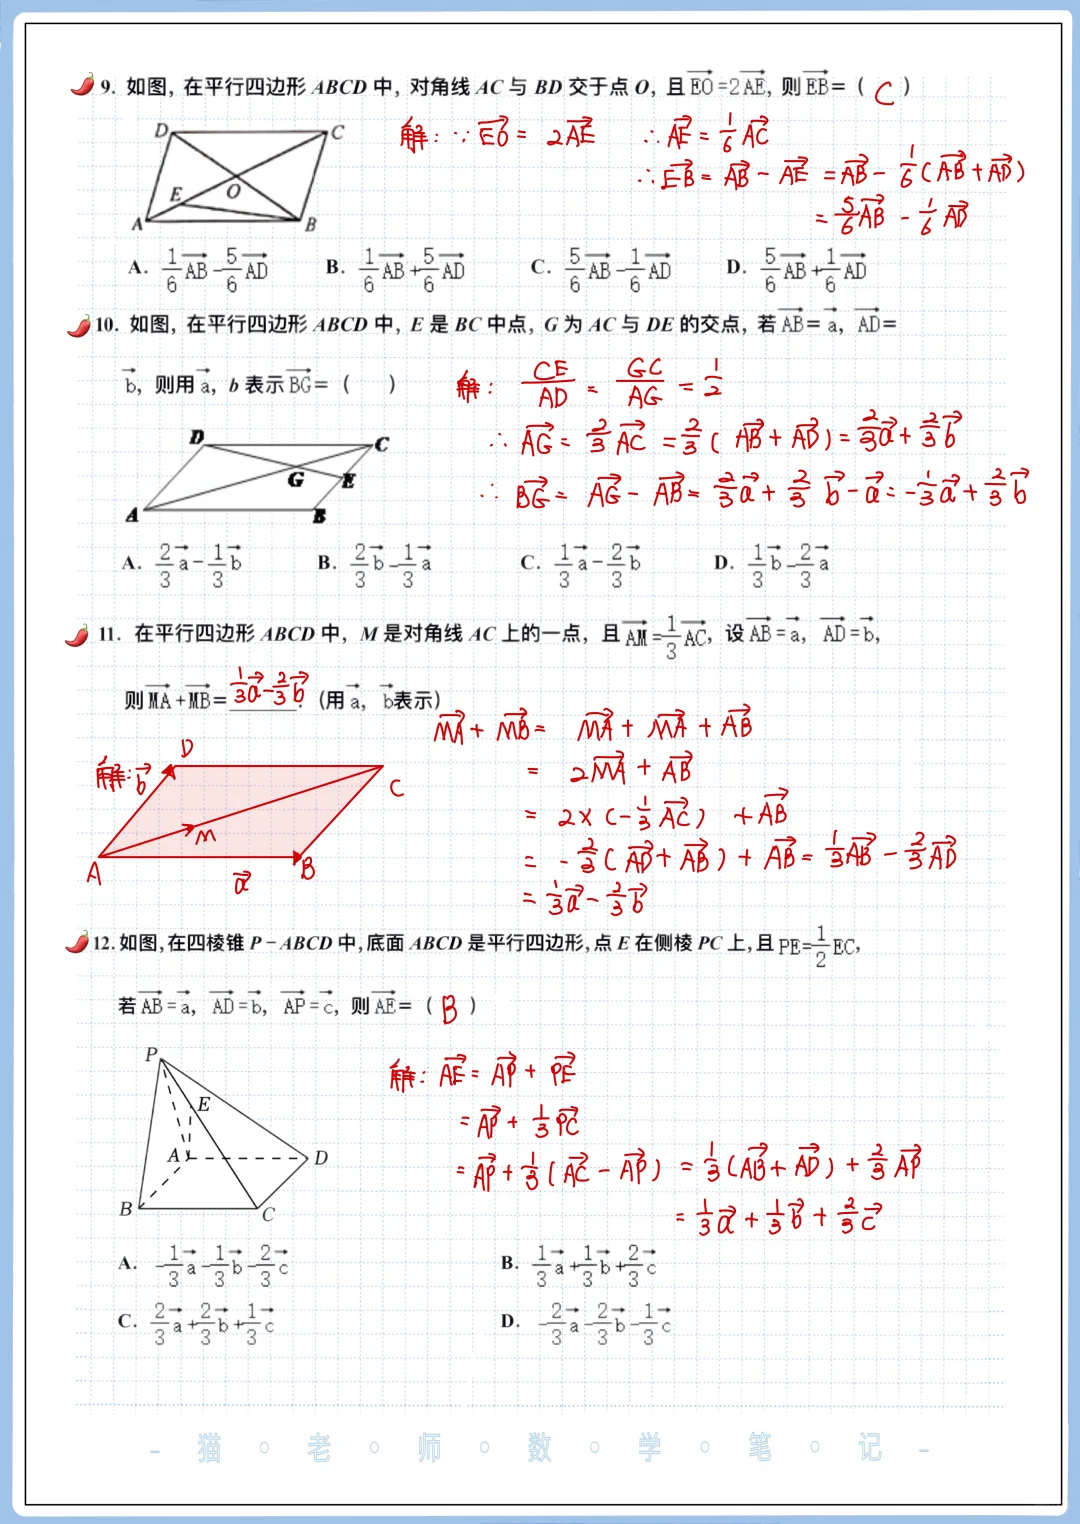 9. 如图, 在平行四边形 ABCD 中, 对角线 AC 与 BD 交于点 O, 且 $\overrightarrow{EO}=2\overrightarrow{AE}$, 则 $\overrightarrow{EB}$=( C )
解: ∵ $\overrightarrow{EO}=2\overrightarrow{AE}$ ∴ $\overrightarrow{AE}=\frac{1}{6}\overrightarrow{AC}$
∴ $\overrightarrow{EB}=\overrightarrow{AB}-\overrightarrow{AE}=\overrightarrow{AB}-\frac{1}{6}(\overrightarrow{AB}+\overrightarrow{AD})$
$=\frac{5}{6}\overrightarrow{AB}-\frac{1}{6}\overrightarrow{AD}$
D C
E O
A B
A. $\frac{1}{6}\overrightarrow{AB}-\frac{5}{6}\overrightarrow{AD}$ B. $\frac{1}{6}\overrightarrow{AB}+\frac{5}{6}\overrightarrow{AD}$ C. $\frac{5}{6}\overrightarrow{AB}-\frac{1}{6}\overrightarrow{AD}$ D. $\frac{5}{6}\overrightarrow{AB}+\frac{1}{6}\overrightarrow{AD}$
10. 如图, 在平行四边形 ABCD 中, E 是 BC 中点, G 为 AC 与 DE 的交点, 若 $\overrightarrow{AB}=\vec{a}$, $\overrightarrow{AD}=$
$\vec{b}$, 则用 $\vec{a}$, b 表示 $\overrightarrow{BG}$=( )
解: $\frac{CE}{AD}=\frac{GC}{AG}=\frac{1}{2}$
∴ $\overrightarrow{AG}=\frac{2}{3}\overrightarrow{AC}=\frac{2}{3}(\overrightarrow{AB}+\overrightarrow{AD})=\frac{2}{3}\vec{a}+\frac{2}{3}\vec{b}$
∴ $\overrightarrow{BG}=\overrightarrow{AG}-\overrightarrow{AB}=\frac{2}{3}\vec{a}+\frac{2}{3}\vec{b}-\vec{a}=-\frac{1}{3}\vec{a}+\frac{2}{3}\vec{b}$
D C
G E
A B
A. $\frac{2}{3}\vec{a}-\frac{1}{3}\vec{b}$ B. $\frac{2}{3}\vec{b}-\frac{1}{3}\vec{a}$ C. $\frac{1}{3}\vec{a}-\frac{2}{3}\vec{b}$ D. $\frac{1}{3}\vec{b}-\frac{2}{3}\vec{a}$
11. 在平行四边形 ABCD 中, M 是对角线 AC 上的一点, 且 $\overrightarrow{AM}=\frac{1}{3}\overrightarrow{AC}$, 设 $\overrightarrow{AB}=\vec{a}$, $\overrightarrow{AD}=\vec{b}$,
则 $\overrightarrow{MA}+\overrightarrow{MB}=$ $\frac{1}{3}\vec{a}-\frac{2}{3}\vec{b}$. (用 $\vec{a}$, $\vec{b}$表示)
$\overrightarrow{MA}+\overrightarrow{MB}=\overrightarrow{MA}+\overrightarrow{MA}+\overrightarrow{AB}$
$=2\overrightarrow{MA}+\overrightarrow{AB}$
$=2×(-\frac{1}{3}\overrightarrow{AC})+\overrightarrow{AB}$
$=-\frac{2}{3}(\overrightarrow{AD}+\overrightarrow{AB})+\overrightarrow{AB}=\frac{1}{3}\overrightarrow{AB}-\frac{2}{3}\overrightarrow{AD}$
$=\frac{1}{3}\vec{a}-\frac{2}{3}\vec{b}$
D
解: $\vec{b}$
C
M
A $\vec{a}$ B
12. 如图, 在四棱锥 P-ABCD 中, 底面 ABCD 是平行四边形, 点 E 在侧棱 PC 上, 且 $PE=\frac{1}{2}EC$,
若 $\overrightarrow{AB}=\vec{a}$, $\overrightarrow{AD}=\vec{b}$, $\overrightarrow{AP}=\vec{c}$, 则 $\overrightarrow{AE}$=( B )
解: $\overrightarrow{AE}=\overrightarrow{AP}+\overrightarrow{PE}$
$=\overrightarrow{AP}+\frac{1}{3}\overrightarrow{PC}$
$=\overrightarrow{AP}+\frac{1}{3}(\overrightarrow{AC}-\overrightarrow{AP})=\frac{1}{3}(\overrightarrow{AB}+\overrightarrow{AD})+\frac{2}{3}\overrightarrow{AP}$
$=\frac{1}{3}\vec{a}+\frac{1}{3}\vec{b}+\frac{2}{3}\vec{c}$
P
E
A D
B C
A. $-\frac{1}{3}\vec{a}-\frac{1}{3}\vec{b}-\frac{2}{3}\vec{c}$ B. $\frac{1}{3}\vec{a}+\frac{1}{3}\vec{b}+\frac{2}{3}\vec{c}$
C. $\frac{2}{3}\vec{a}+\frac{2}{3}\vec{b}+\frac{1}{3}\vec{c}$ D. $-\frac{2}{3}\vec{a}-\frac{2}{3}\vec{b}-\frac{1}{3}\vec{c}$
- 猫 · 老 · 师 · 数 · 学 · 笔 · 记 -